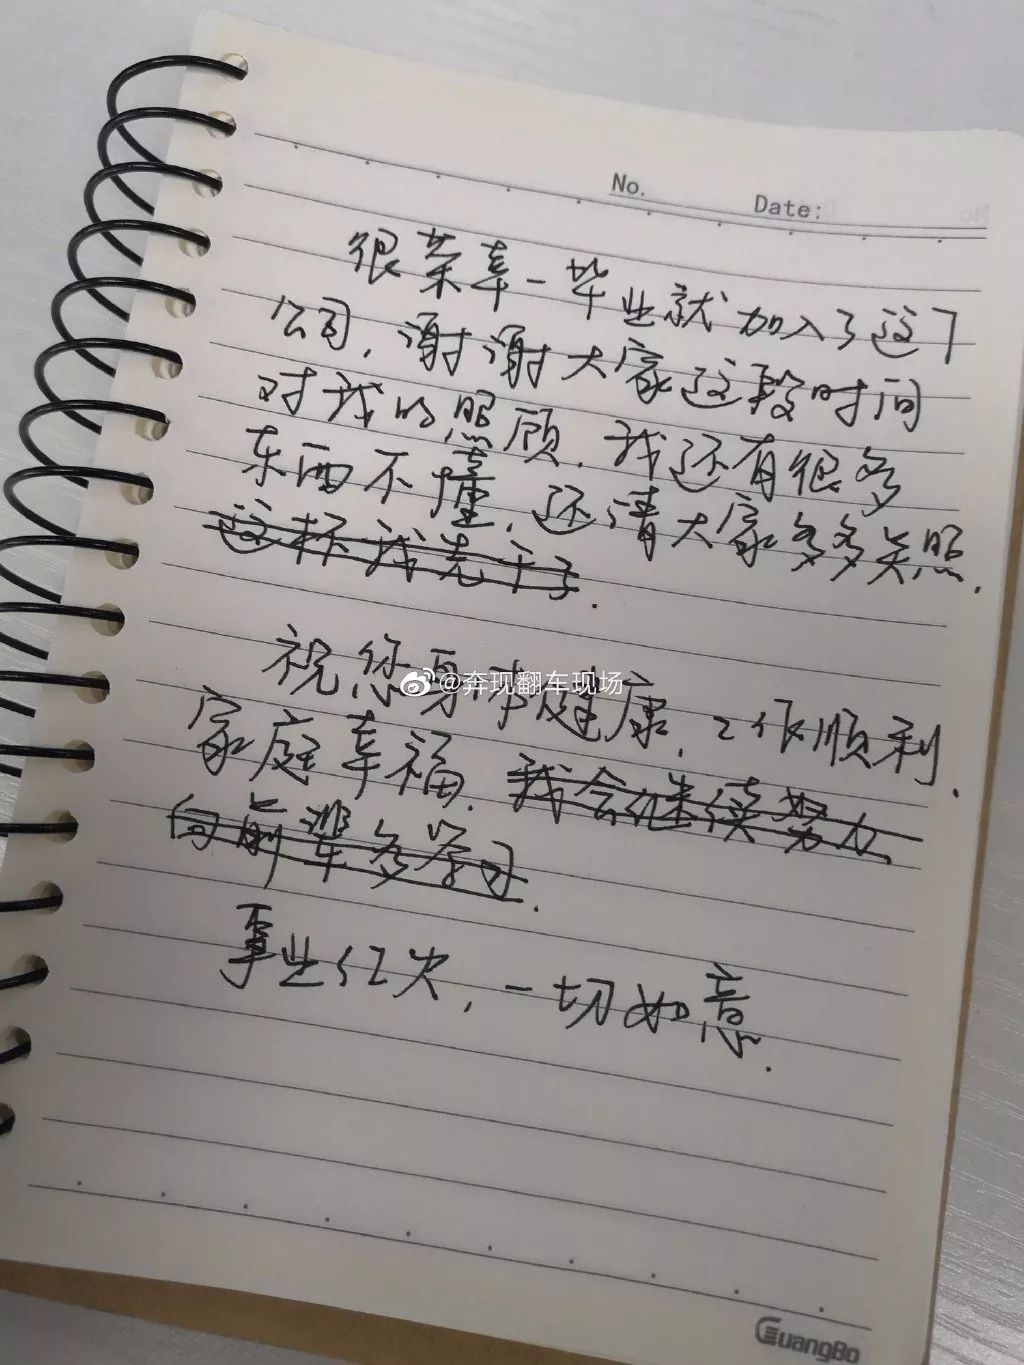 No. Date:
很荣幸一毕业就加入了这个
公司，谢谢大家这段时间
对我的照顾。我还有很多
东西不懂，还请大家多多关照.
这杯我先干了.
@奔现翻车现场
祝您身体健康，工作顺利.
家庭幸福. 我会继续努力
向前辈多学习.
事业红火，一切如意.
GuangBo